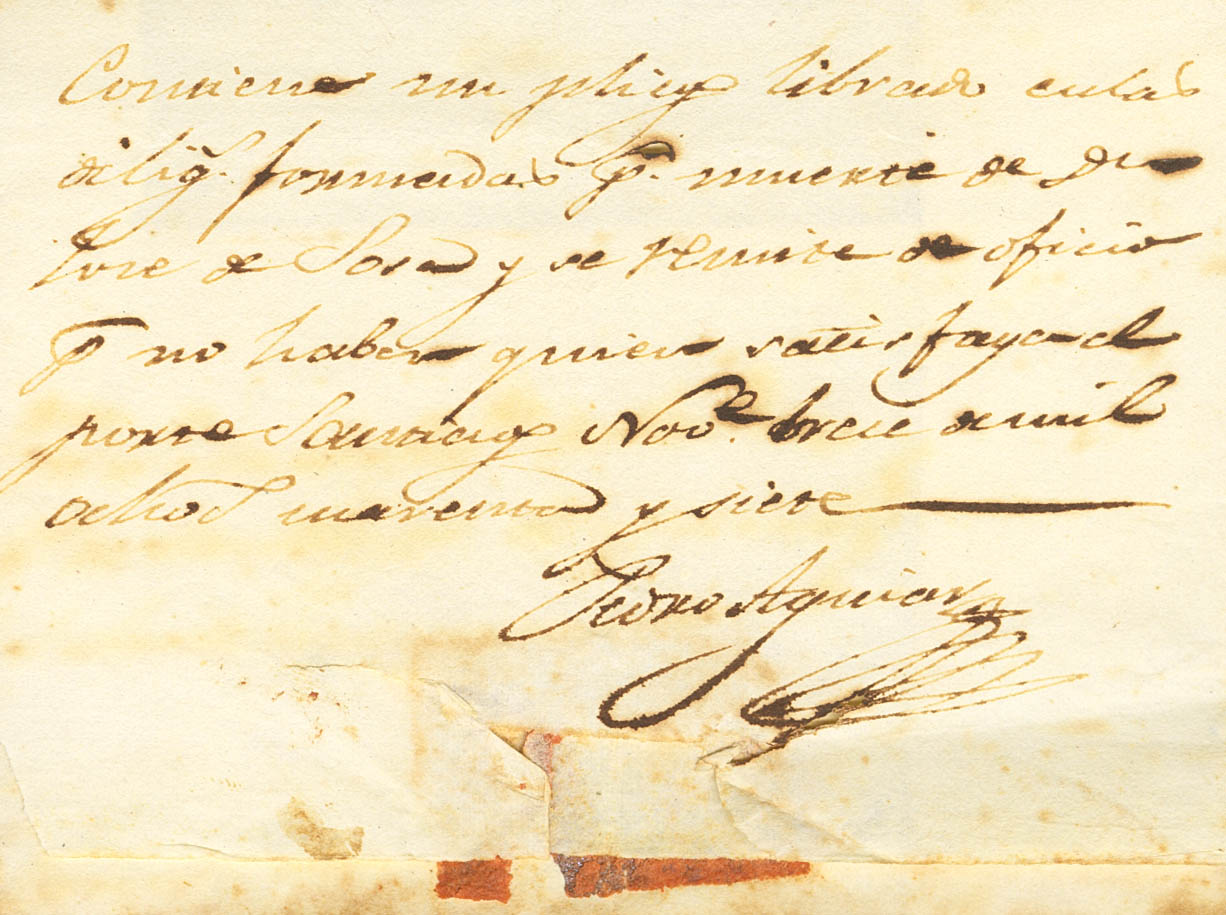 Contiene un pliego librado en las
dilig.s formadas p.r muerte de D.n
Jose de Sosa y se remite de oficio
p.r no haber quien satisfaga el
porte Santiago Nov.e trece de mil
ochos cuarenta y siete
Pedro Aguiar